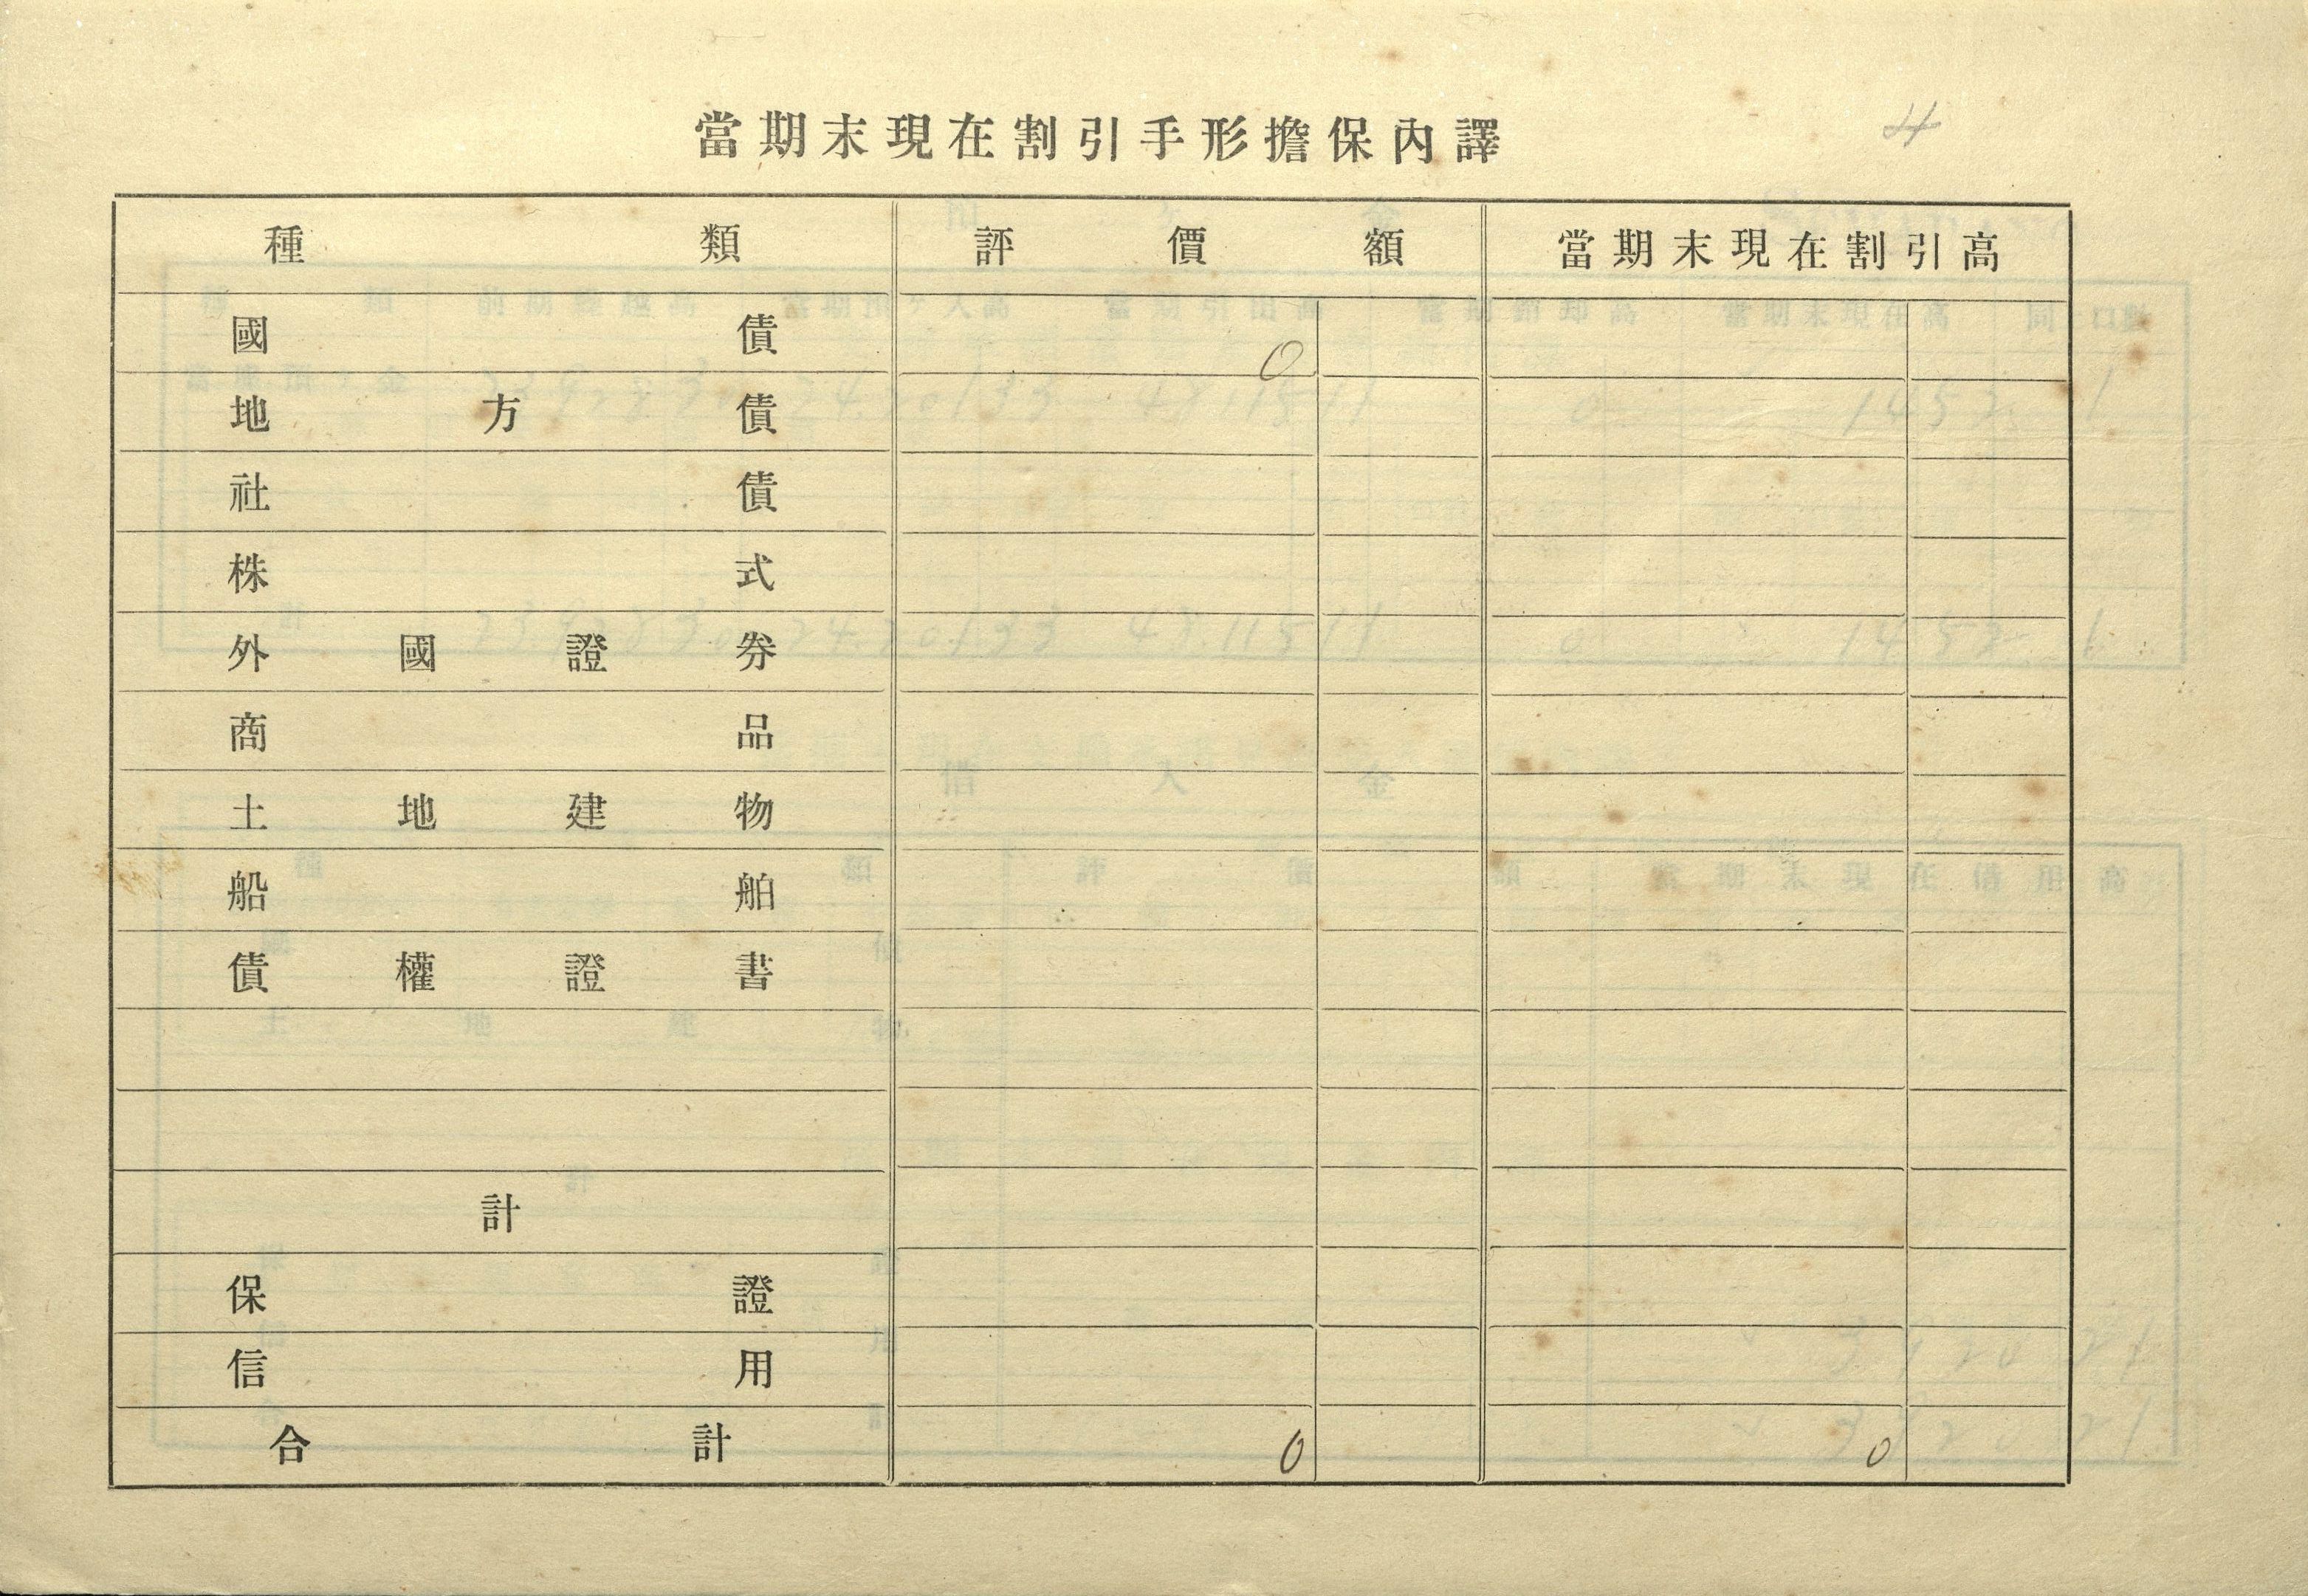 當期末現在割引手形擔保內譯
4
種類 評價額 當期末現在割引高
國債 0
地方債
社債
株式
外國證券
商品
土地建物
船舶
債權證書
計
保證
信用
合計 0 0